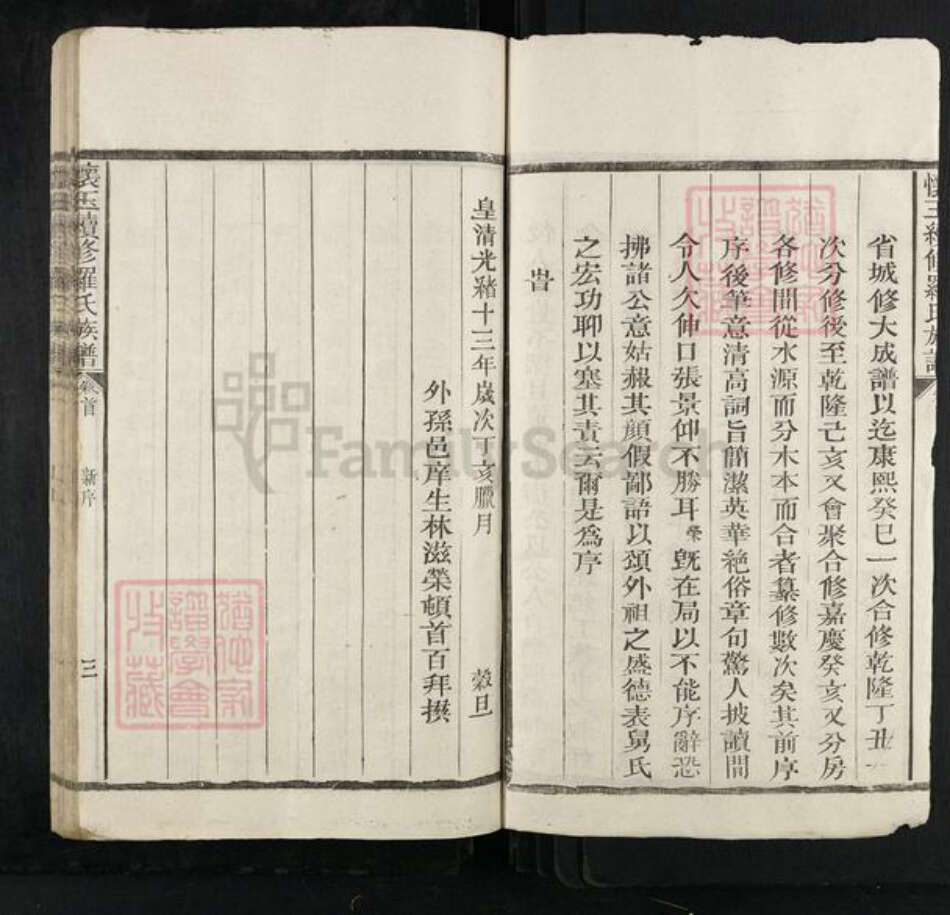 省城修大成譜以迄康熙癸巳一次合修乾隆丁丑一
次分修後至乾隆己亥又會聚合修嘉慶癸亥又分房
各修間從水源而分木本而合者纂修數次矣其前序
序後筆意清高詞旨簡潔英華絕俗章句驚人披讀間
令人欠伸口張景仰不勝耳榮既在局以不能序辭恐
拂諸公意姑赧其顏假鄙語以頌外祖之盛德表舅氏
之宏功聊以塞其責云爾是為序
旹
皇清光緒十三年歲次丁亥臘月 穀旦
外孫邑庠生林滋榮頓首百拜撰
懷玉續修羅氏族譜 卷首 新序 三
懷玉續修羅氏族譜
FamilySearch